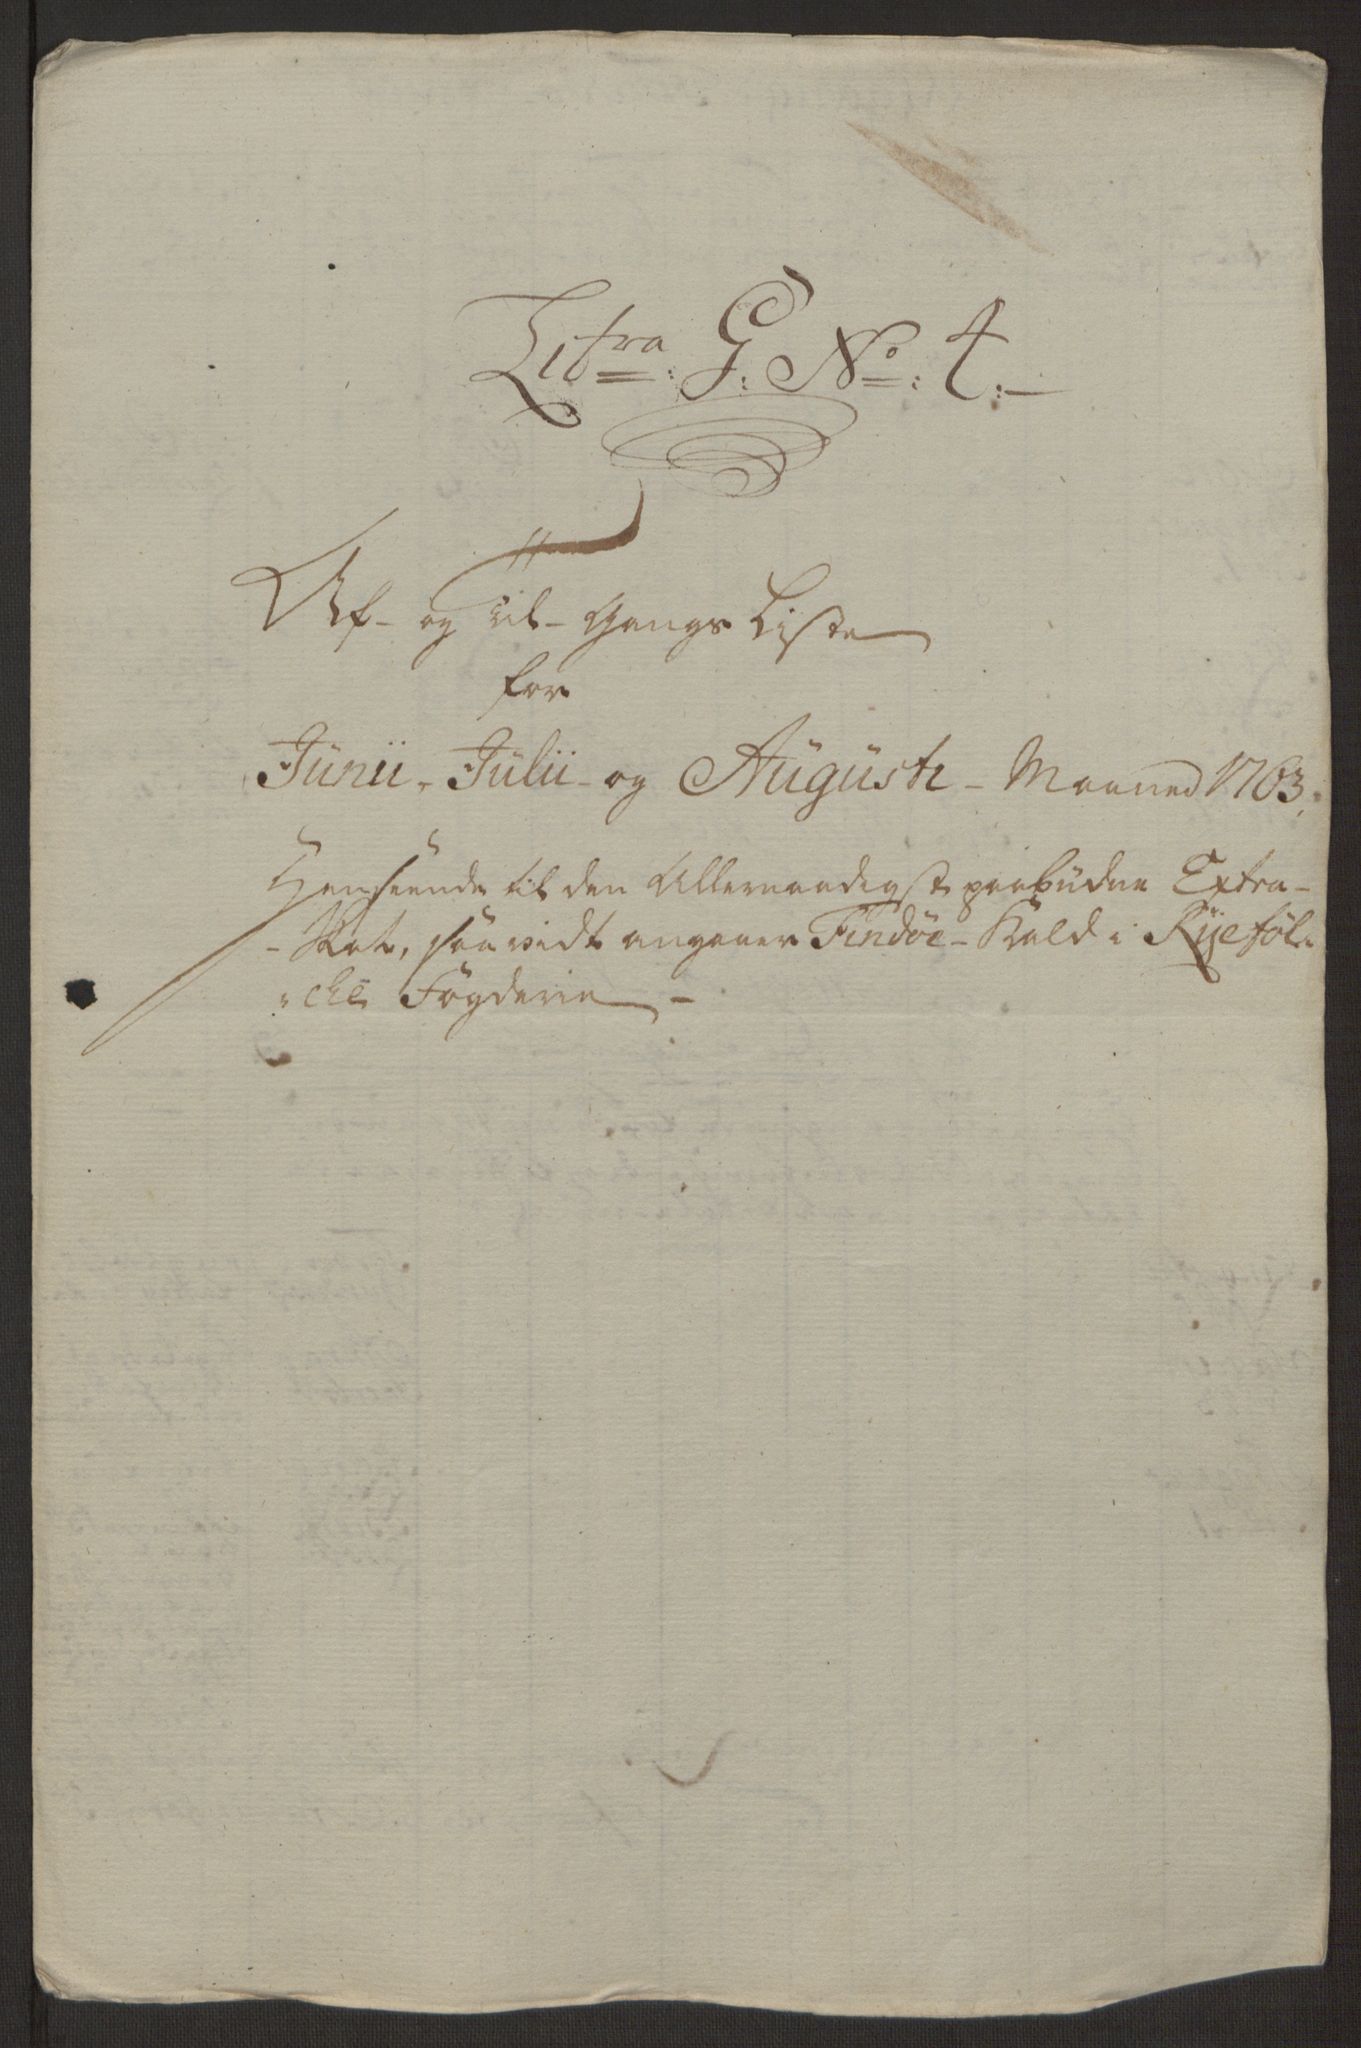 Litra G. No. 4.
Af- og Til-Gangs Liste
for
Junii, Julii og Augusti Maaned 1763.
Henseende til den Allernaadigst paabudne Extra-
-Skat, saavidt angaaer Findöe-Kald i Ryeföl-
-che Fögderie